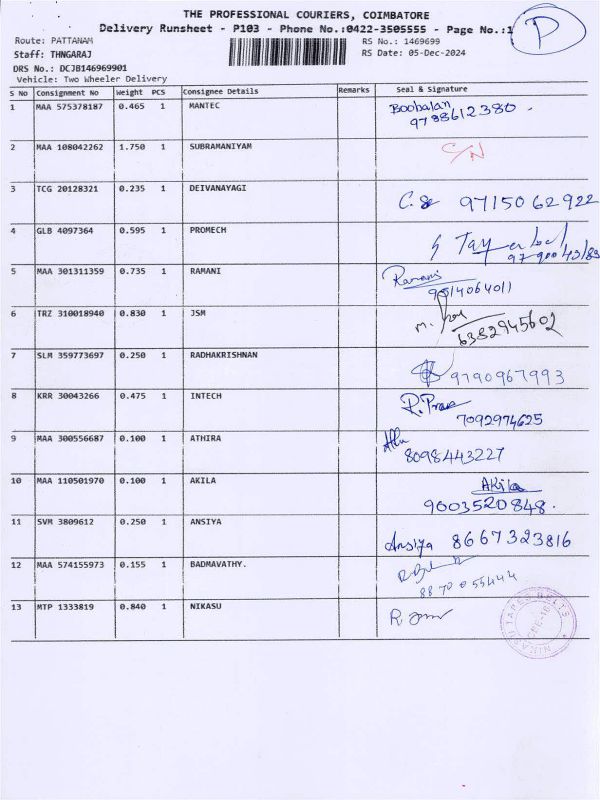 THE PROFESSIONAL COURIERS, COIMBATORE
Delivery Runsheet - P103 - Phone No.:0422-3505555 - Page No.:1 P
Route: PATTANAM RS No.: 1469699
Staff: THNGARAJ RS Date: 05-Dec-2024
DRS No.: DCJB146969901
Vehicle: Two Wheeler Delivery
S No Consignment No Weight PCS Consignee Details Remarks Seal & Signature
1 MAA 575378187 0.465 1 MANTEC Boobalan
9788612380
2 MAA 108042262 1.750 1 SUBRAMANIYAM C/N
3 TCG 20128321 0.235 1 DEIVANAYAGI 9715062922
4 GLB 4097364 0.595 1 PROMECH
5 MAA 301311359 0.735 1 RAMANI Ramani
6 TRZ 310018940 0.830 1 JSM
6382945602
7 SLM 359773697 0.250 1 RADHAKRISHNAN 9790967993
8 KRR 30043266 0.475 1 INTECH
7092974625
9 MAA 300556687 0.100 1 ATHIRA
8098443227
10 MAA 110501970 0.100 1 AKILA Akila
9003520848.
11 SVM 3809612 0.250 1 ANSIYA Ansiya 8667323816
12 MAA 574155973 0.155 1 BADMAVATHY.
8870055444
13 MTP 1333819 0.840 1 NIKASU
NIKASU TAPES BELTS
CBE-16